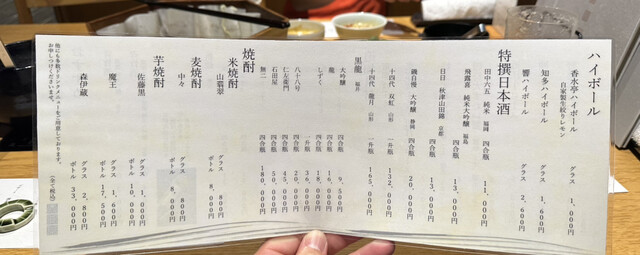 ハイボール
香水亭ハイボール
自家製生絞りレモン
グラス 1,000円
知多ハイボール グラス 1,600円
響ハイボール グラス 2,600円
特撰日本酒
田中六五 純米 福岡 四合瓶 11,000円
飛露喜 純米大吟醸 福島 四合瓶 13,000円
日日 秋津山田錦 京都 四合瓶 13,000円
磯自慢 大吟醸 静岡 四合瓶 20,000円
十四代 双虹 山形 一升瓶 132,000円
十四代 龍月 山形 一升瓶 165,000円
黒龍 福井
大吟醸 四合瓶 9,500円
龍 四合瓶 16,000円
しずく 四合瓶 18,000円
八十八号 一升瓶 36,000円
仁左衛門 四合瓶 45,000円
石田屋 四合瓶 50,000円
無二 四合瓶 180,000円
焼酎
米焼酎
山翡翠 グラス 800円
ボトル 8,000円
麦焼酎
中々 グラス 800円
ボトル 8,000円
芋焼酎
佐藤黒 グラス 1,000円
ボトル 10,000円
魔王 グラス 1,600円
ボトル 17,500円
森伊蔵 グラス 2,800円
ボトル 33,000円
他にも多数ドリンクメニューをご用意しております。
お申しつけくださいませ。
(全て税込)